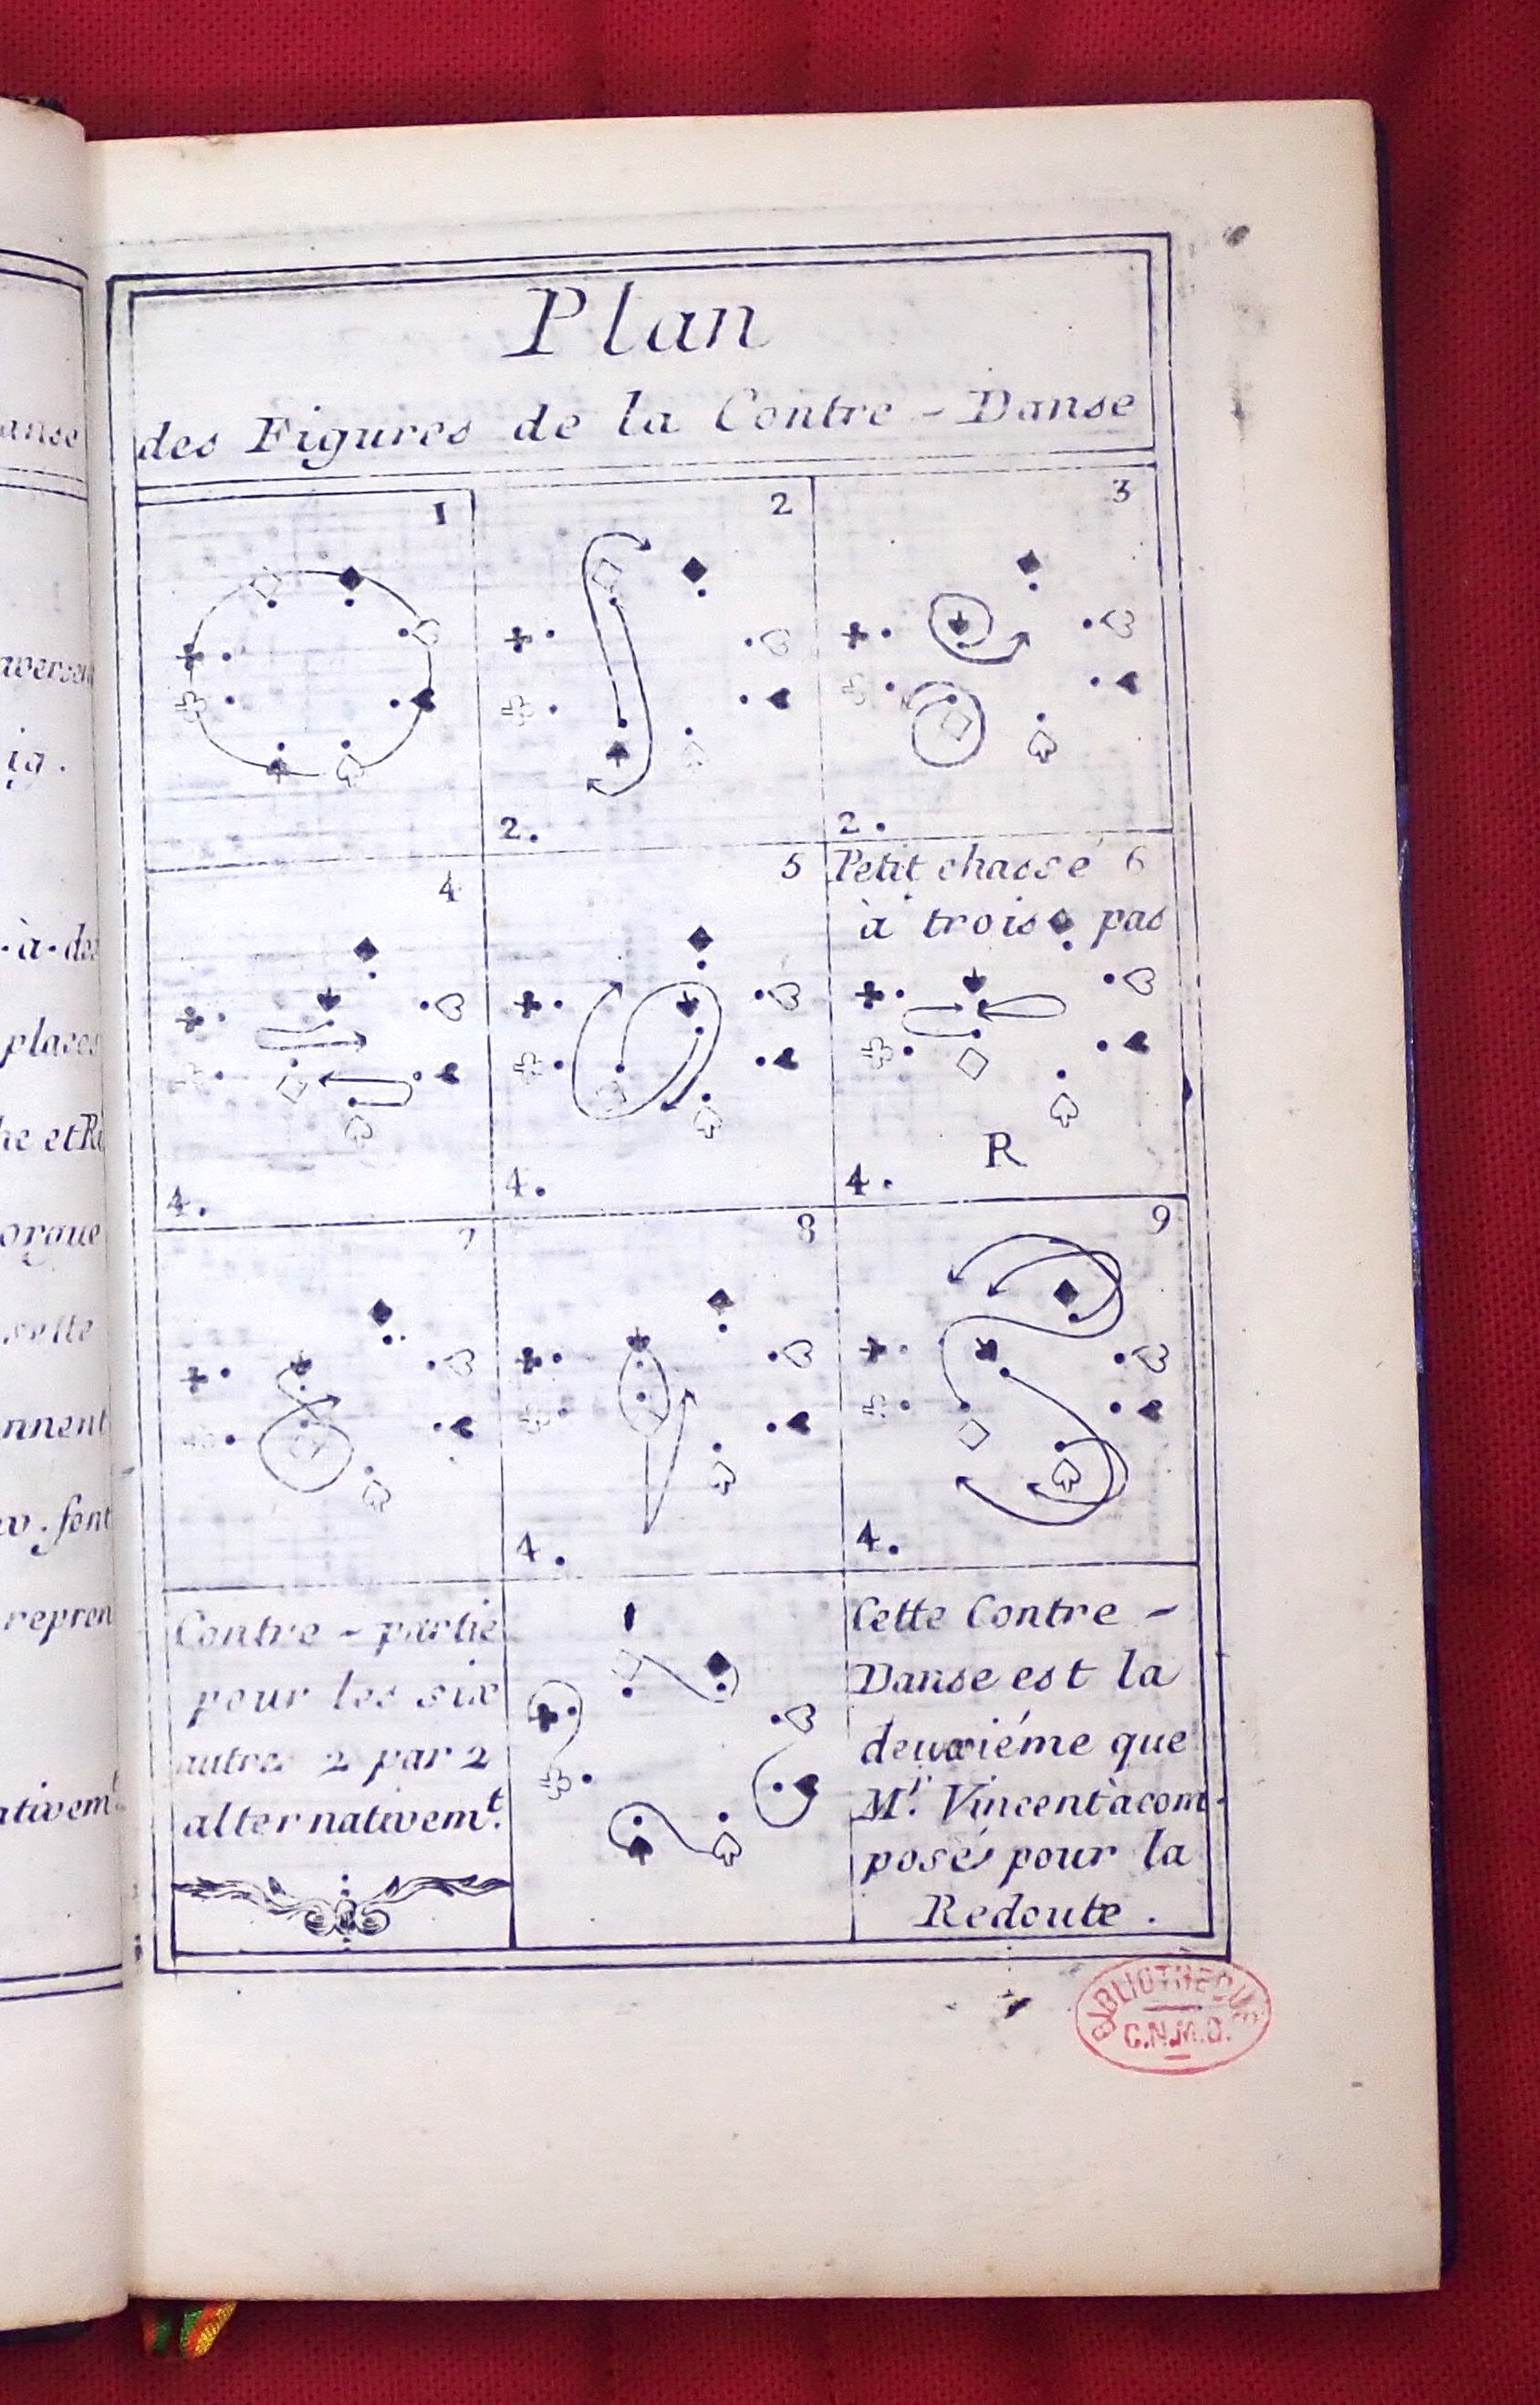 Plan
des Figures de la Contre - Danse
1
2
2.
3
2.
4
4.
5
4.
Petit chassé 6
à trois pas
R
4.
7
8
4.
9
4.
Contre - partie
pour les six
autres 2 par 2
alternativem.t
Cette Contre -
Danse est la
deuxiéme que
M.r Vincent à com-
posés pour la
Redoute.
BIBLIOTHÈQUE
C.N.M.D.
anse
ig.
-à-dos
places
orgue
nnent
font
repren
ativem.t